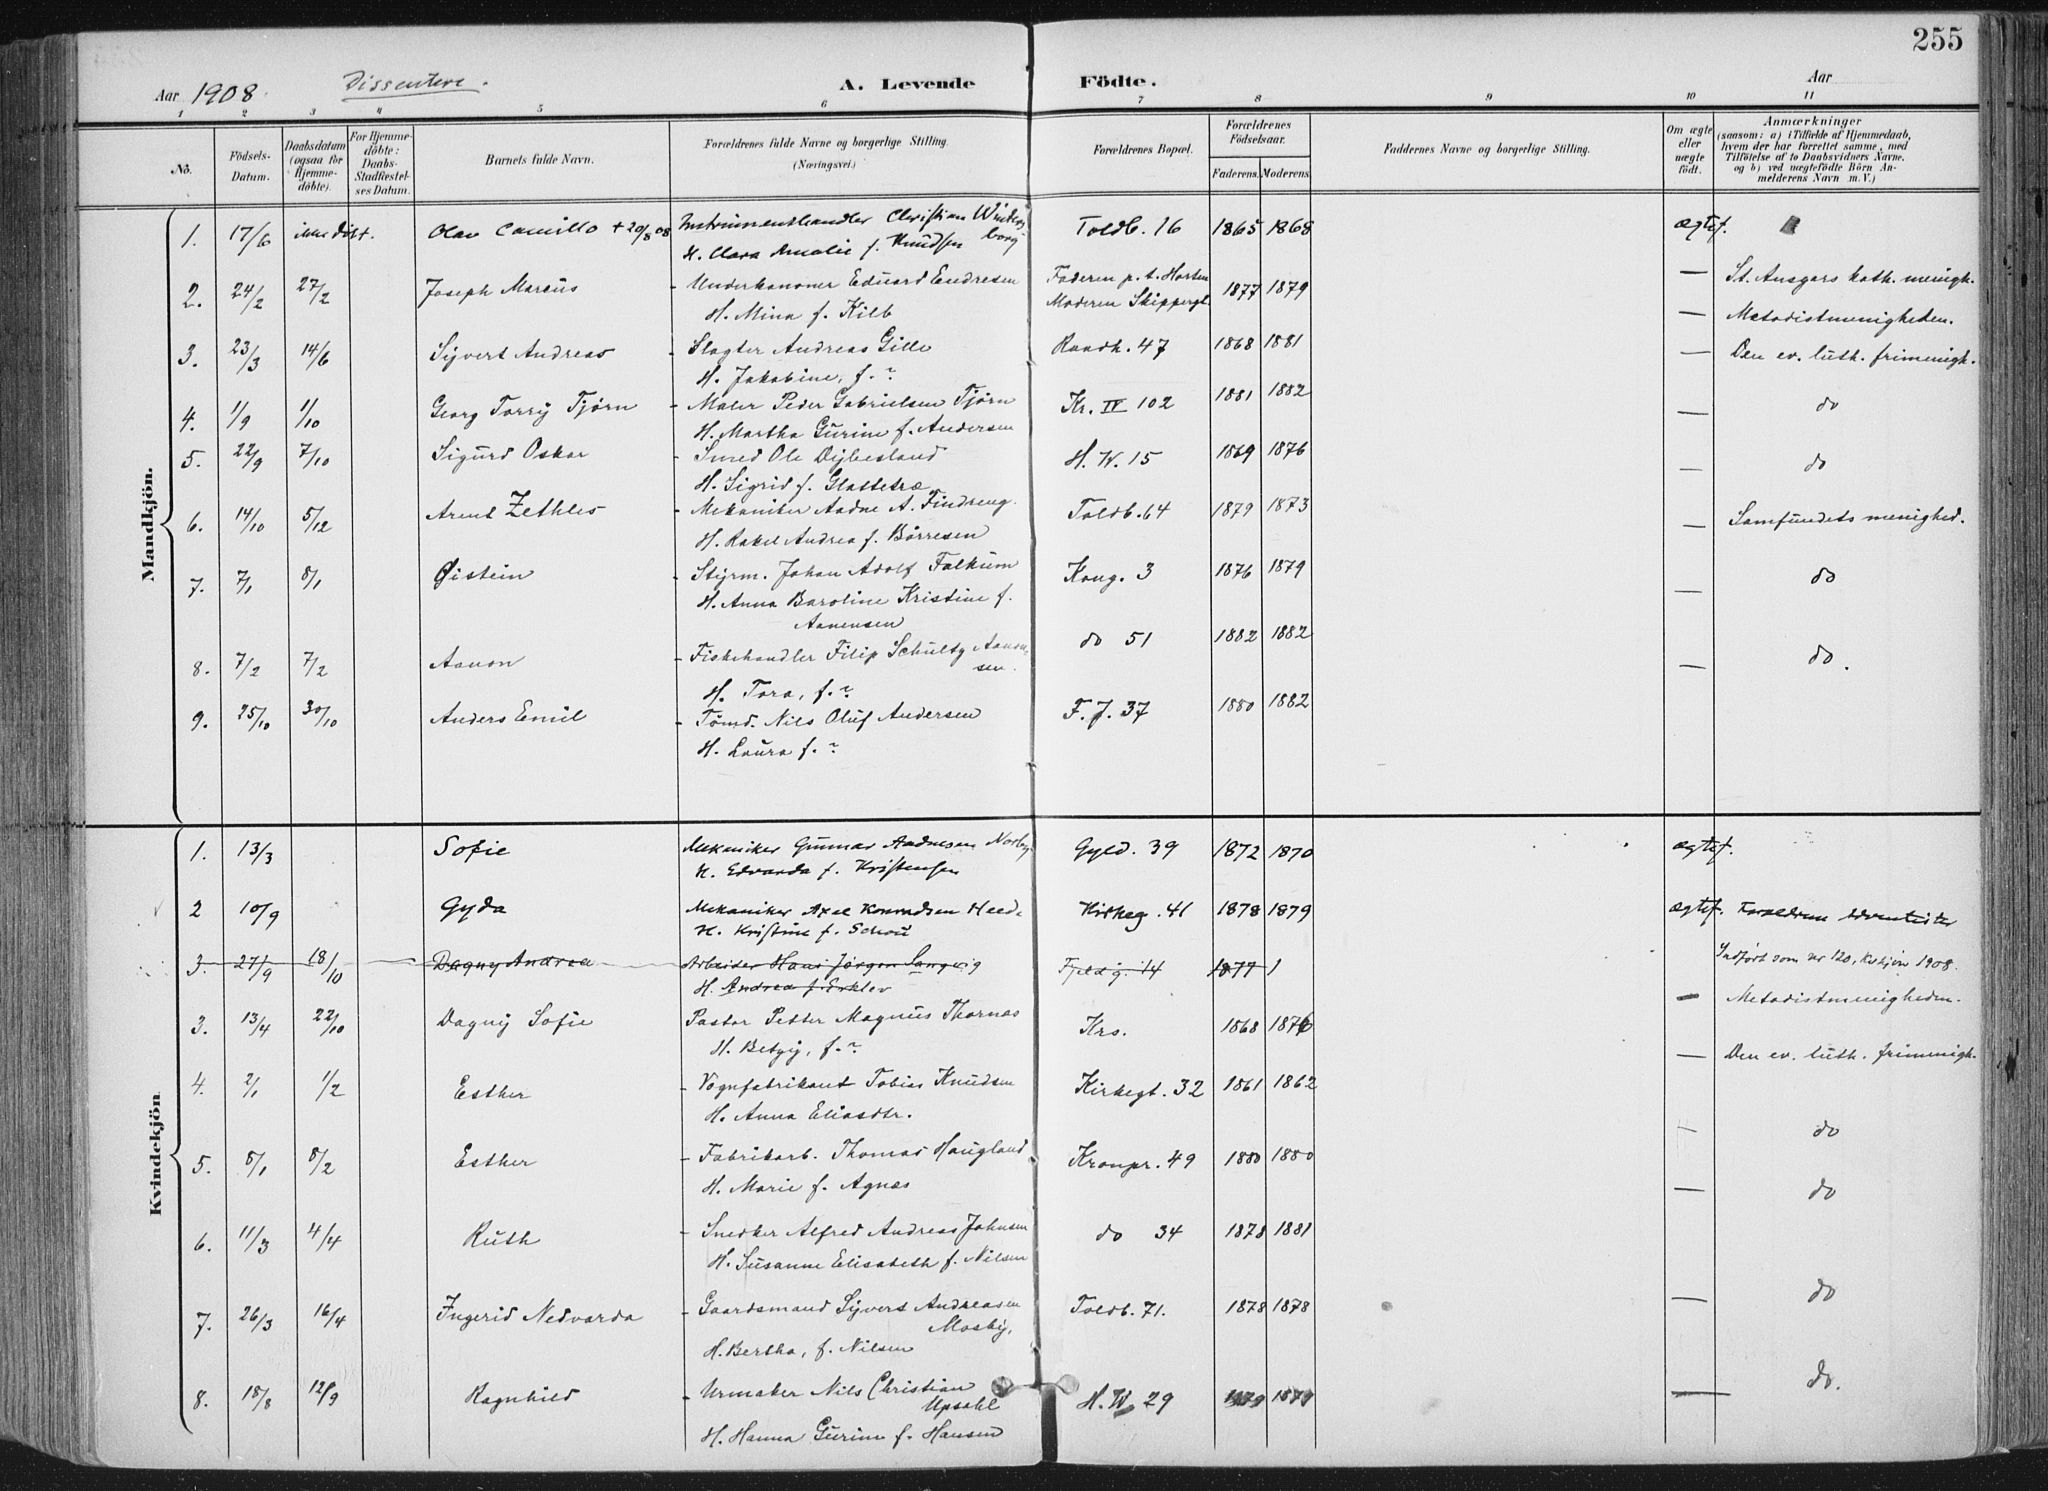 255
Aar 1908. Dissentere. A. Levende Födte. Aar
1 2 3 4 5 6 7 8 9 10 11
Nö.
Födsels-Datum.
Daabsdatum (ogsaa for Hjemme-döbte).
For Hjemme-döbte: Daabs-Stadfæstel-ses Datum.
Barnets fulde Navn.
Forældrenes fulde Navne og borgerlige Stilling.
(Næringsvei.)
Forældrenes Bopæl.
Forældrenes Födselsaar.
Faderens. Moderens.
Faddernes Navne og borgerlige Stilling.
Om ægte eller uægte födt.
Anmærkninger
(saasom: a) i Tilfælde af Hjemmedaab,
hvem der har forrettet samme, med
Tilföielse af to Daabsvidners Navne,
og b) ved uægtefödte Börn An-
melderens Navn m. V.)
Mandkjön.
1. 17/6 ikke døbt. Olav Camillo + 20/8 08 Instrumenthandler Christian Windersborg Toldb. 16 1865 1868 ægtef.
H. Clara Amalie f. Knudsen
2. 24/2 27/2 Joseph Marcus - Underkanoner Eduard Endresen Faderen p.t. Horten 1877 1879 — St. Ansgars kath. menigh.
H. Mina f. Kilb Moderen Skippergt.
— Metodistmenigheden.
3. 23/3 14/6 Sÿvert Andreas - Slagter Andreas Gille Raadh. 47 1868 1881 — Den ev. luth. frimenigh.
H. Jakobine, f. ?
4. 1/9 1/10 Georg Torrÿ Tjørn - Maler Peder Gabrielsen Tjørn Kr. IV 102 1881 1882 — do
H. Martha Gurine f. Andersen
5. 22/9 7/10 Sigurd Oskar - Smed Ole Dybesland H. W. 15 1869 1876 — do
H. Sigrid f. Glattetræ
6. 14/10 5/12 Arent Zethles - Mekaniker Aadne A. Findreng. Toldb. 64 1879 1873 — Samfundets menighed.
H. Rakel Andrea f. Børresen
7. 7/1 8/1 Øistein - Styrm. Johan Adolf Falkum Kong. 3 1876 1879 — do
H. Anna Baroline Kristine f.
Aanensen
8. 7/2 7/2 Aanon - Fiskehandler Filip Schultz Aanonsen. do 51 1882 1882 — do.
H. Tora, f. ?
9. 25/10 30/10 Anders Emil - Tømd. Nils Oluf Andersen F. J. 37 1880 1882
H. Laura f. ?
Kvindekjön
1. 13/3 Sofie Mekaniker Gunnar Aadnesen Norby Gyld. 39 1872 1870 ægtef.
H. Edvarda f. Kristensen
2 10/9 Gyda Mekaniker Axel Konradsen Heede Kirkeg. 41 1878 1879 ægtef. Forældrene adventister
H. Kristine f. Schou
3. 27/9 18/10 Dagny Andrea Arbeider Hans Jørgen Langvig Fjeldg. 14 1877 1 Indført som nr 120, Kvkjøn 1908.
H. Andrea f. Erklev
3. 13/4 22/10 Dagnÿ Sofie Pastor Petter Magnus Thornæs Krs. 1868 1876 — Metodistmenigheden.
H. Betzy, f. ?
4. 2/1 1/2 Esther - Vognfabrikant Tobias Knudsen Kirkegt. 32 1861 1862 — Den ev. luth. frimenigh.
H. Anna Eliasdtr.
5. 8/1 8/2 Esther - Fabrikarb. Thomas Haugland Kronpr. 49 1880 1880 — do
H. Marie f. Agnæs
6. 11/3 4/4 Ruth - Snedker Alfred Andreas Johnsen do 34 1878 1881 — do
H. Susanne Elisabeth f. Nilsen
7. 26/3 16/4 Ingerid Nedvarda - Gaardsmand Sÿvert Andreasen Mosby, Toldb. 71. 1878 1878 — do
H. Bertha, f. Nilsen
8. 18/8 12/9 Ragnhild - Urmaker Nils Christian Upsahl H. W. 29 1879 1879 — do.
H. Hanna Gurine f. Hansen